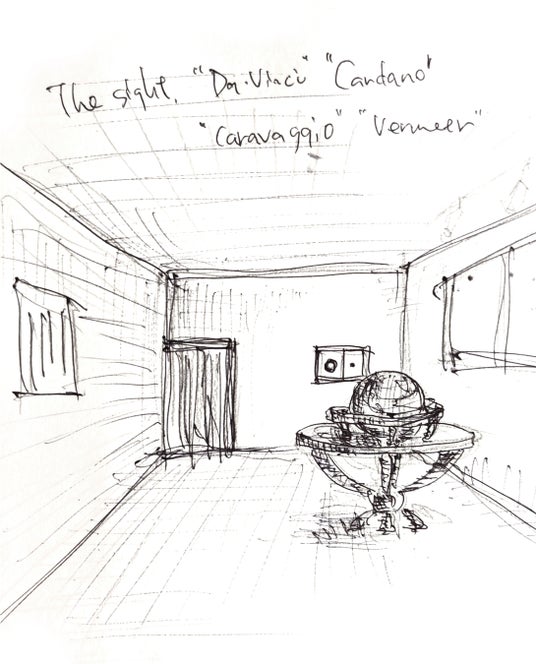 The sight. "Da.Vinci" "Cardano"
"Caravaggio" "Vermeer"